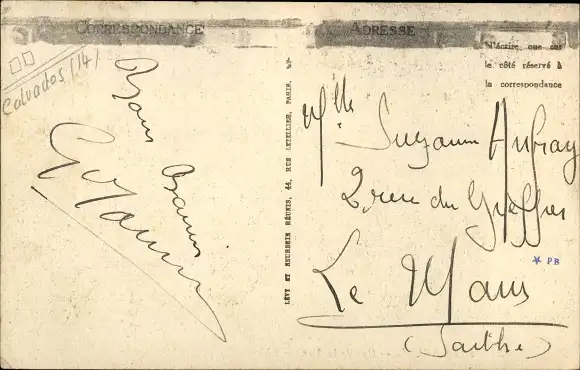 CORRESPONDANCE
Calvados (14)
Bons Baisers
ADRESSE
N'écrire que sur
le côté réservé à
la correspondance
Mlle Suzanne Aufray
2 rue du Greffier
Le Mans
(Sarthe)
LÉVY ET NEURDEIN RÉUNIS, 44, RUE LETELLIER, PARIS.
* PB